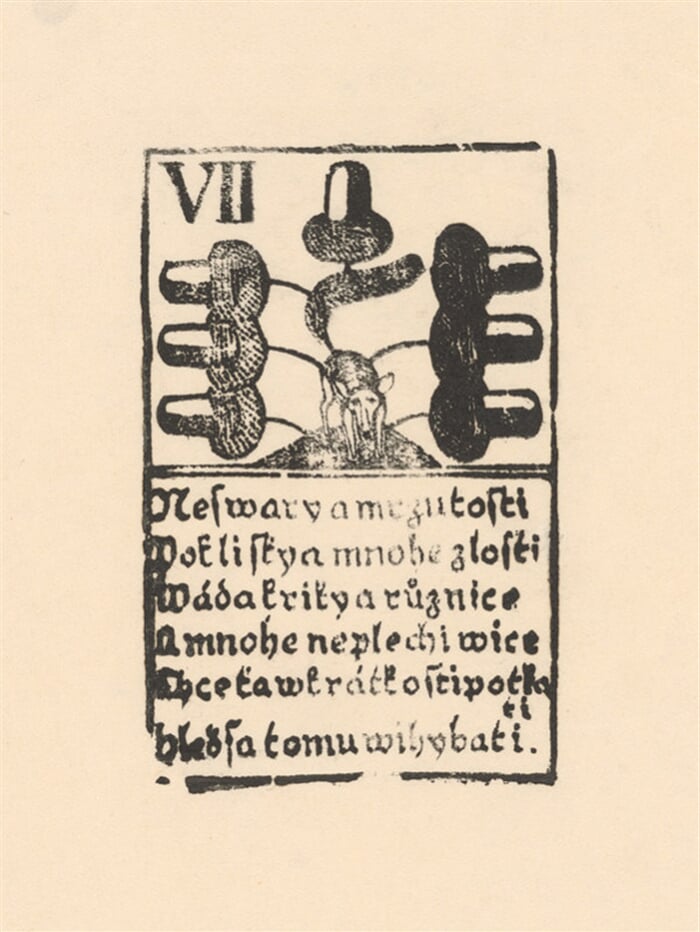 VII
Neſwary a mrzutoſti
Pokliſky a mnohe zloſti
Wáda kriky a různice
A mnohe neplechi wice
Chce ťa w krátkoſti potka
ti
hleď ſa tomu wihybati.